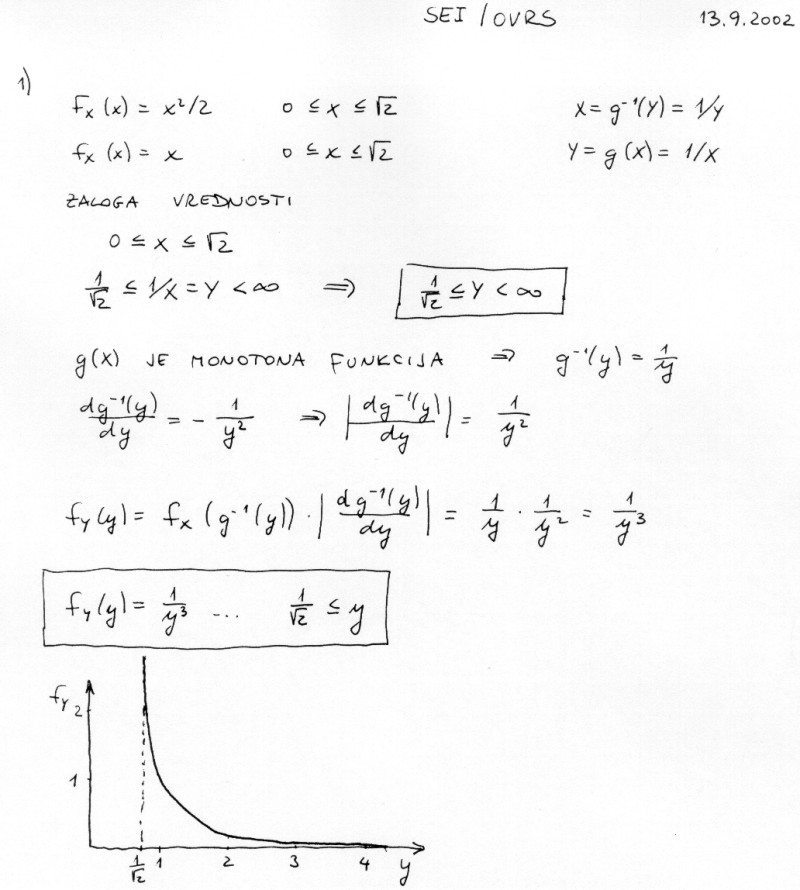 SEI / OVRS 13.9.2002
1)
Fx (x) = x²/2 0 ≤ x ≤ √2 X = g⁻¹(Y) = 1/Y
fx (x) = x 0 ≤ x ≤ √2 Y = g(X) = 1/X
ZALOGA VREDNOSTI
0 ≤ X ≤ √2
1/√2 ≤ 1/X = Y < ∞ ⇒ 1/√2 ≤ Y < ∞
g(X) JE MONOTONA FUNKCIJA ⇒ g⁻¹(y) = 1/y
dg⁻¹(y)/dy = - 1/y² ⇒ |dg⁻¹(y)/dy| = 1/y²
fY(y) = fX (g⁻¹(y)) · |dg⁻¹(y)/dy| = 1/y · 1/y² = 1/y³
fY(y) = 1/y³ ... 1/√2 ≤ y
fY
2
1
1/√2 1 2 3 4 y